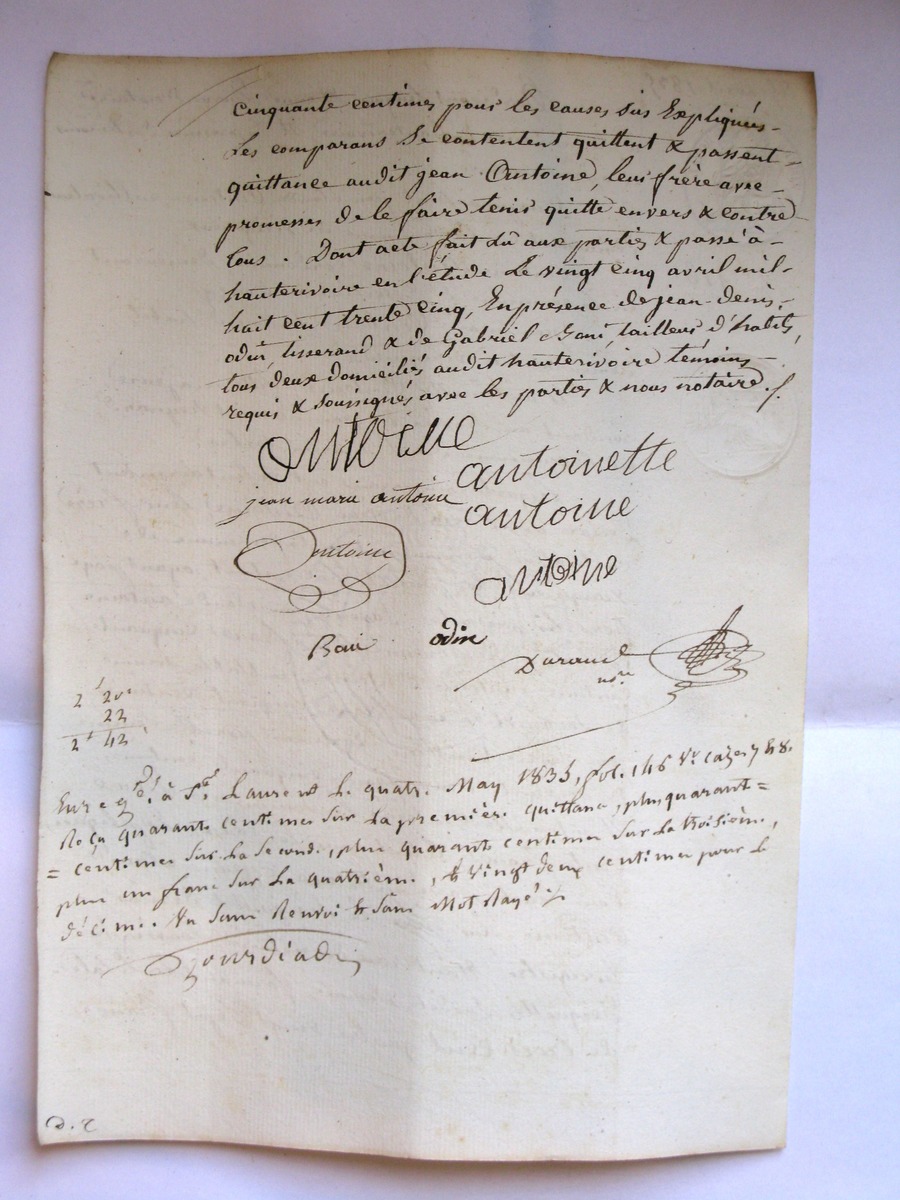 cinquante centimes pour les causes sus Expliquées
Les comparans se contentent quittent & passent
quittance audit jean Antoine, leur frère avec
promesses de le faire tenir quitte envers & contre
tous. Dont acte fait lû aux parties & passé à
hauterivoire en l'étude Le vingt cinq avril mil
huit cent trente cinq, En présence de jean denis
odin, tisserand & de Gabriel tailleur d'habits,
tous deux domiciliés audit hauterivoire témoins
requis & soussignés avec les parties & nous notaire./.
antoine
antoinette
jean marie antoine
antoine
Antoine
antoine
odin
Durand
nre
2f 20c
22
2f 42
Enregté. à St. Laurent Le quatre May 1835, fol. 146 Vo cases 7 & 8.
Reçu quarante centimes sur La première quittance, plus quarante=
=centimes sur La Seconde, plus quarante centimes sur La troisième,
plus un franc sur La quatrième, & vingt deux centimes pour le
décime. Vu Sans Renvoi & Sans Mot Rayé ./.